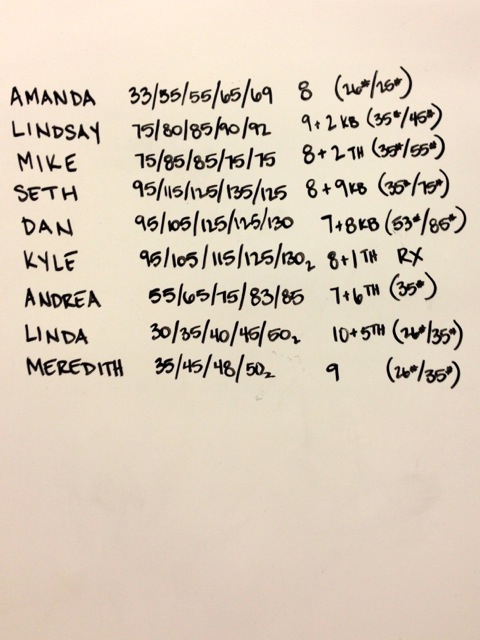 AMANDA 33/35/55/65/69 8 (26#/25#)
LINDSAY 75/80/85/90/92 9+2 KB (35#/45#)
MIKE 75/85/85/75/75 8+2 TH (35#/55#)
SETH 95/115/125/135/125 8+9KB (35#/75#)
DAN 95/105/125/125/130 7+8KB (53#/85#)
KYLE 95/105/115/125/130₂ 8+1TH RX
ANDREA 55/65/75/83/85 7+6TH (35#)
LINDA 30/35/40/45/50₂ 10+5TH (26#/35#)
MEREDITH 35/45/48/50₂ 9 (26#/35#)